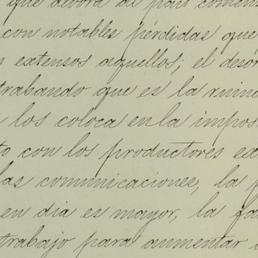 que devora al país comen
con notables pérdidas que
extensos aquellos; el desór
trabando que es la ruina
los coloca en la impos
to con los productores ex
las comunicaciones, la f
en dia es mayor, la fa
trabajo para aumentar